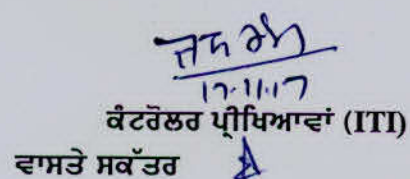 17.11.17
ਕੰਟਰੋਲਰ ਪ੍ਰੀਖਿਆਵਾਂ (ITI)
ਵਾਸਤੇ ਸਕੱਤਰ